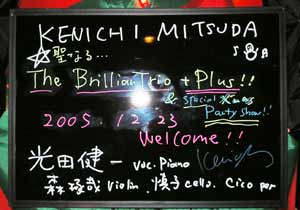 KENICHI MITSUDA
☆聖なる...
The BrillianTrio + Plus!!
& Special X'mas
Party Show!!
2005 12 23
Welcome!!
光田健一 Voc. Piano
森琢哉 violin. 慎子 cello. Cico per